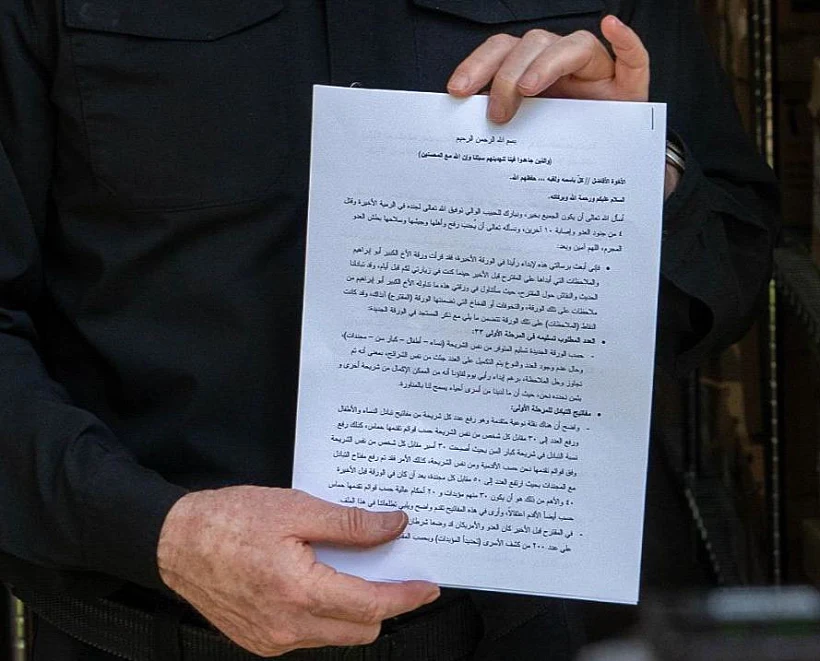 بسم الله الرحمن الرحيم
(والذين جاهدوا فينا لنهدينهم سبلنا وإن الله مع المحسنين)
الأخوة الأفاضل // كلٌ باسمه ولقبه ... حفظهم الله.
السلام عليكم ورحمة الله وبركاته.
أسأل الله تعالى أن يكون الجميع بخير، ونبارك للحبيب الوالي توفيق الله تعالى لجنده في الرمية الأخيرة وقتل
٤ من جنود العدو وإصابة ١٠ آخرين، ونسأله تعالى أن يُجنب رفح وأهلها وجيشها وسلاحها بطش العدو
المجرم، اللهم آمين وبعد:
• فإني أبعث برسالتي هذه لإبداء رأينا في الورقة الأخيرة، فقد قرأت ورقة الأخ الكبير أبو إبراهيم
والملاحظات التي أبداها على المقترح قبل الأخير حينما كنت في زيارتي لكم قبل أيام، وقد تبادلنا
الحديث والنقاش حول المقترح، حيث سأتناول في ورقتي هذه ما تداوله الأخ الكبير أبو إبراهيم من
ملاحظات على تلك الورقة، والتخوفات أو التي تضمنتها الورقة (المقترح) آنذاك، وقد كانت
النقاط (الملاحظات) على تلك الورقة تتضمن ما يلي مع ذكر المستجد في الورقة الجديدة:
• العدد المطلوب تسليمه في المرحلة الأولى ٣٣:
- حسب الورقة الجديدة تسليم المتوفر من نفس الشريحة (نساء – أطفال – كبار سن – مجندات)،
وحال عدم وجود العدد والنوع يتم التكميل على العدد جثث من نفس الشرائح، بمعنى أنه تم
تجاوز وحل الملاحظة، برغم إبداء رأيي يوم لقاؤنا أنه من الممكن الإكمال من شريحة أخرى و
بثمن نحدده نحن، حيث أن ما لدينا من أسرى أحياء يسمح لنا بالمناورة.
• مفاتيح التبادل للمرحلة الأولى:
- واضح أن هناك نقلة نوعية متقدمة وهو رفع عدد كل شريحة من مفاتيح تبادل النساء والأطفال
ورفع العدد إلى ٣٠ مقابل كل شخص من نفس الشريحة حسب قوائم تقدمها حماس، كذلك رفع
نسبة التبادل في شريحة كبار السن بحيث أصبحت ٣٠ أسير مقابل كل شخص من نفس الشريحة
وفق قوائم تقدمها نحن حسب الأقدمية ومن نفس الشريحة، كذلك الأمر فقد تم رفع مفتاح التبادل
مع المجندات بحيث ارتفع العدد إلى ٥٠ مقابل كل مجندة، بعد أن كان في الورقة قبل الأخيرة
٤٠ والأهم من ذلك هو أن يكون ٣٠ منهم مؤبدات و ٢٠ أحكام عالية حسب قوائم تقدمها حماس
حسب أيضاً الأقدم اعتقالاً، وأرى في هذه المفاتيح تقدم واضح ويلبي تطلعاتنا في هذا الملف.
- في المقترح قبل الأخير كان العدو والأمريكان قد وضعا شرطان
على عدد ٢٠٠ من كشف الأسرى (تحديداً المؤبدات) وبحسب